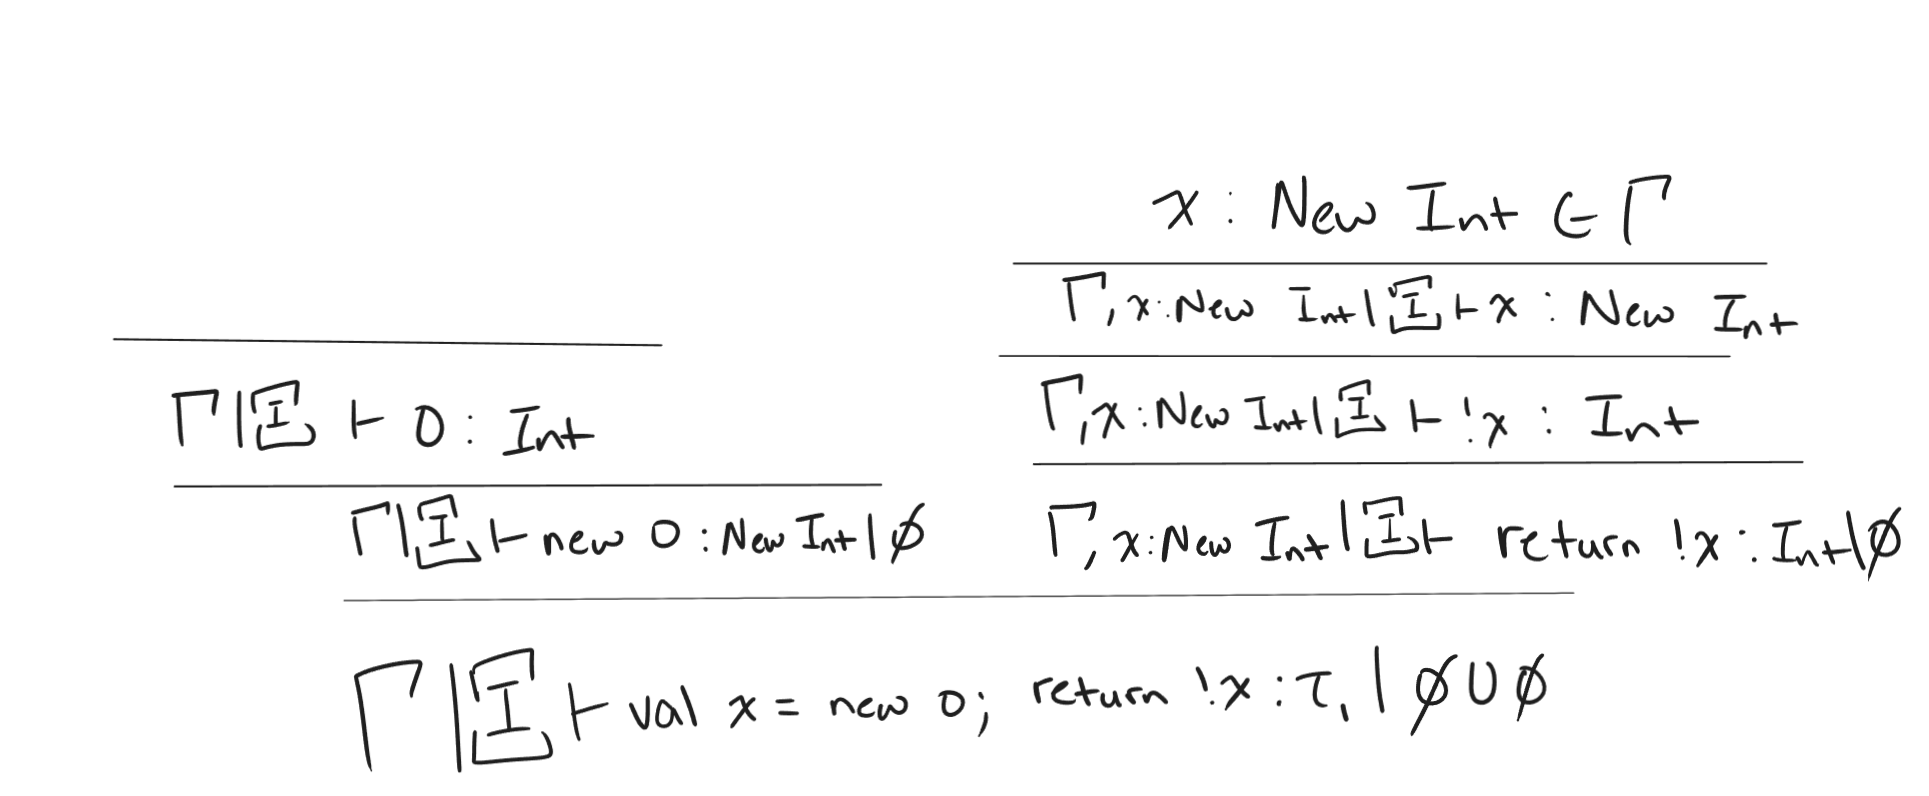 x : New Int ∈ Γ
Γ, x : New Int | Ξ ⊢ x : New Int
Γ | Ξ ⊢ 0 : Int
Γ, x : New Int | Ξ ⊢ !x : Int
Γ | Ξ ⊢ new 0 : New Int | ∅
Γ, x : New Int | Ξ ⊢ return !x : Int | ∅
Γ | Ξ ⊢ val x = new 0; return !x : τ₁ | ∅ ∪ ∅